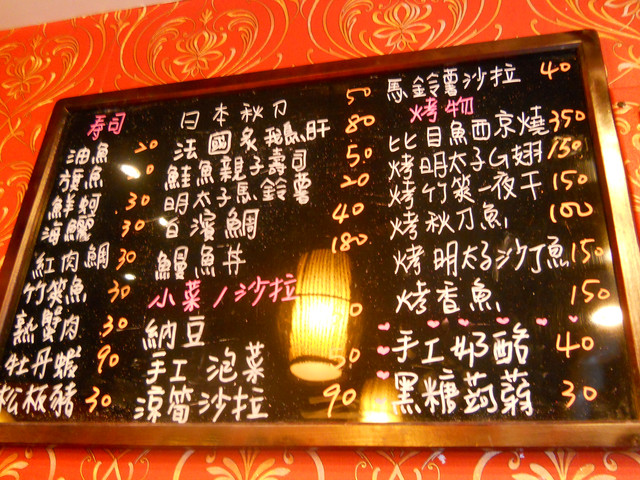 壽司
油魚 20
旗魚 0
鮮蚵 30
海鱺 30
紅肉鯛 30
竹筴魚 30
熟蟹肉 30
牡丹蝦 90
松板豬 30
日本秋刀 50
法國炙鵝肝 80
鮭魚親子壽司 50
明太子馬鈴薯 20
白濱鯛 40
鰻魚丼 180
小菜/沙拉
納豆 0
手工泡菜 30
涼筍沙拉 90
馬鈴薯沙拉 40
烤物
比目魚西京燒 350
烤明太子G翅 150
烤竹筴一夜干 150
烤秋刀魚 100
烤明太子沙丁魚 150
烤香魚 150
手工奶酪 40
黑糖蒟蒻 30